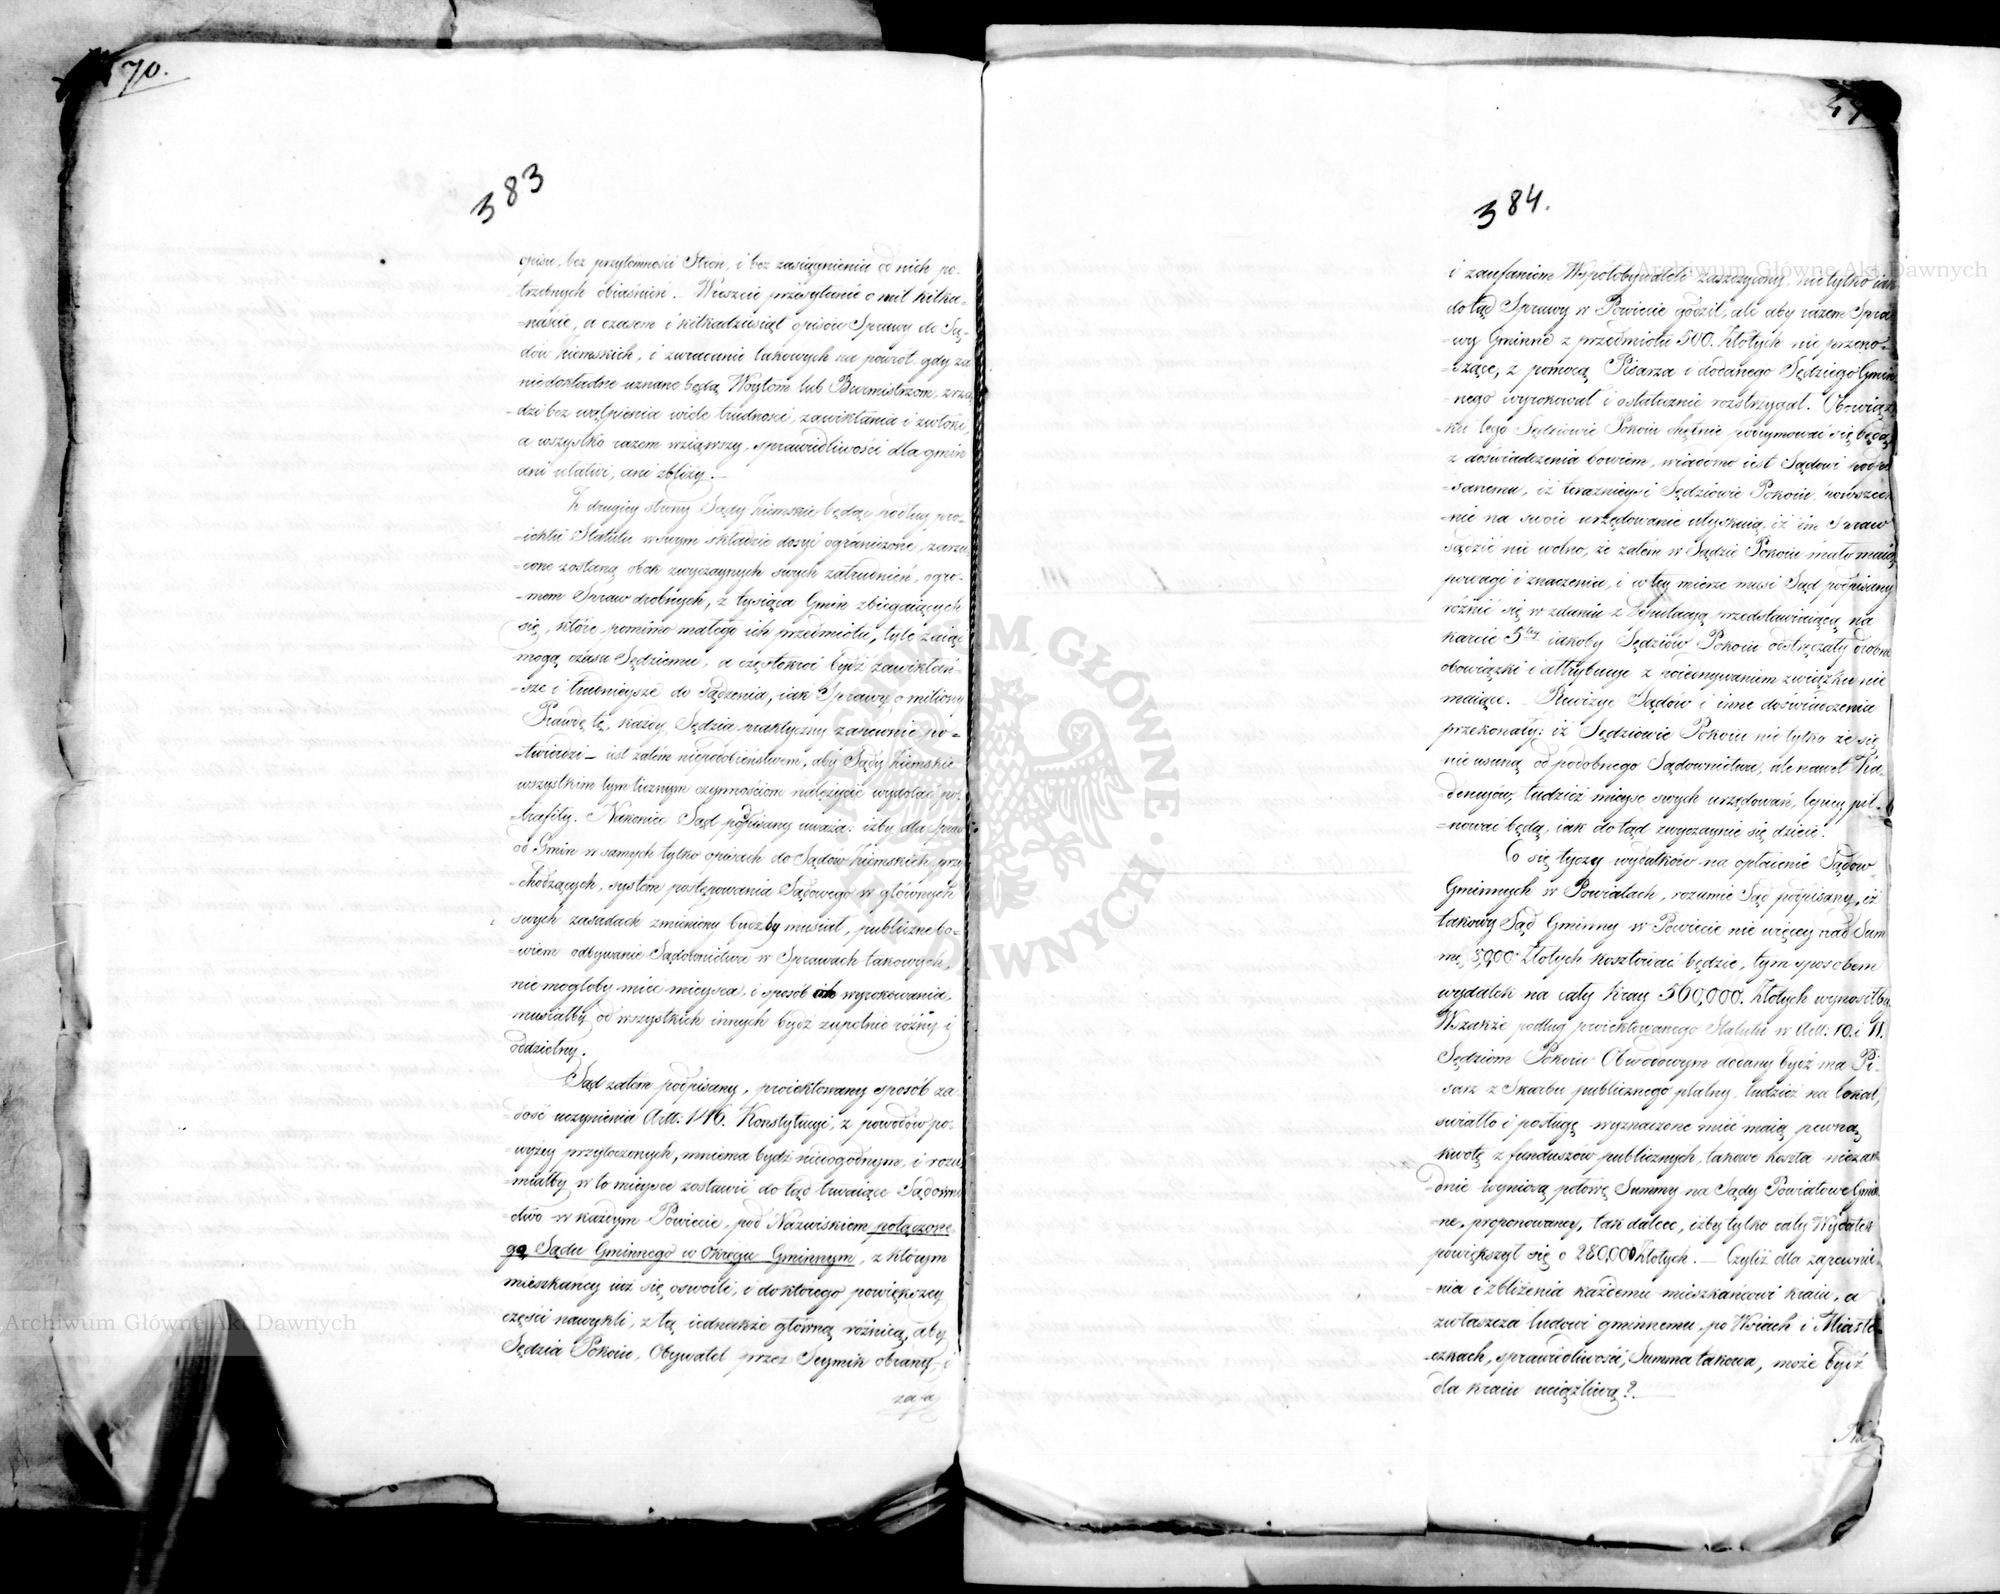 70.
383
opisu, bez przytomności Stron, i bez zasiągnienia od nich po-
trzebnych obiaśnień. Wreszcie przesyłanie o mil kilka-
=naście, a czasem i kilkadziesiąt opisów Sprawy do Są-
dów Ziemskich, i zwracanie takowych na powrót, gdy za
niedokładne uznane będą Woytom lub Burmistrzom, zrzą
-dzi bez wątpienia wiele trudności, zawikłania i zwłoki,
a wszystko razem wziąwszy, sprawiedliwości dla gmin
ani ułatwi, ani zbliży. —
Z drugiey strony Sądy Ziemskie będąc podług pro-
=iektu Statutu w swym składzie dosyć ograniczone, zarzu
=cone zostaną obok zwyczaynych swych zatrudnień, ogro-
=mem Spraw drobnych, z tysiąca Gmin zbiegaiących
się, które pomimo małego ich przedmiotu, tyle zaiąć
mogą czasu Sędziemu, a częstokroć bydź zawikłań-
=sze i trudnieysze do sądzenia, iak Sprawy o miliony
Prawdę tę, każdy Sędzia praktyczny zapewnie po=
=twierdzi — iest zatem niepodobieństwem, aby Sądy Ziemskie
wszystkim tym licznym czynnościom należycie wydołać po-
trafiły. Nakoniec Sąd podpisany uważa: iżby dla Spraw
od Gmin w samych tylko opisach do Sądów Ziemskich przy
=chodzących, system postępowania Sądowego w głównych
swych zasadach zmieniony bydźby musiał, publiczne bo-
=wiem odbywanie Sądownictwa w Sprawach takowych,
nie mogłoby mieć mieysca, i sposób ich wyrokowania,
musiałby od wszystkich innych bydź zupełnie różny i
oddzielny.
Sąd zatem podpisany, proiektowany sposób za-
dość uczynienia Art: 146. Konstytucyi, z powodów po-
wyżey przytoczonych, mniema bydź niedogodnym, i rozu
=miałby w to mieysce zostawić do tąd trwaiące Sądowni
ctwo w każdym Powiecie, pod Nazwiskiem połączone
go Sądu Gminnego w Okręgu Gminnym, z którym
mieszkańcy iuż się oswoili, i do którego powiększey
części nawykli, z tą iednakże główną różnicą, aby
Sędzia Pokoiu, Obywatel przez Seymik obrany, i
zaufa
384.
i zaufaniem Współobywateli zaszczycony, nie tylko iak
do tąd Sprawy w Powiecie godził, ale aby razem Spra
=wy Gminne z przedmiotu 500. Złotych nie przeno-
=szące, z pomocą Pisarza i dodanego Sędziego Gmin
=nego wyrokował i ostatecznie rozstrzygał. Obowiąz
=ku tego Sędziowie Pokoiu chętnie podeymować się będą,
z doświadczenia bowiem, wiadomo iest Sądowi podpi
=sanemu, iż teraznieysi Sędziowie Pokoiu, powszech
=nie na swoie urzędowanie utyskuią, iż im Spraw
sądzić nie wolno, że zatem w Sądzie Pokoiu mało maią
powagi i znaczenia, i w tey mierze musi Sąd podpisany
różnić się w zdaniu z Deputacyą przedstawiaiącą na
karcie 5tey iakoby Sędziów Pokoiu odstręczały drobne
obowiązki i attrybucye z poiednywaniem związku nie
maiące. — Rewizye Sądów i inne doświadczenia
przekonały: iż Sędziowie Pokoiu nie tylko że się
nie usuną od podobnego Sądownictwa, ale nawet Ka-
dencyów, tudzież mieysc swych urzędowań, lepiey pil-
=nować będą, iak do tąd zwyczaynie się dzieie.
Co się tyczy wydatków na opłacenie Sądów
Gminnych w Powiatach, rozumie Sąd podpisany, iż
takowy Sąd Gminny w Powiecie nie więcey nad Sum
mę, Złotych kosztować będzie, tym sposobem
wydatek na cały Kray 560,000. Złotych wynosiłby.
Wszakże podług proiektowanego Statutu w Art: 10. i 11.
Sędziom Pokoiu Obwodowym dodany bydź ma Pi-
sarz z Skarbu publicznego płatny, tudzież na lokal,
światło i posługę wyznaczone mieć maią pewną
kwotę z funduszów publicznych, takowe koszta niezaw
dnie wyniosą połowę Summy na Sądy Powiatowe Gmin
=ne, proponowaney, tak dalece, iżby tylko cały Wydatek
powiększył się o 280,000 Złotych. — Czyliż dla zapewnie-
nia i zbliżenia każdemu mieszkańcowi kraiu, a
zwłaszcza ludowi gminnemu, po Wsiach i Miaste-
czkach, sprawiedliwości, Summa takowa, może bydź
dla kraiu uciążliwą? —
Archiwum Główne Akt Dawnych
Archiwum Główne Akt Dawnych
ARCHIWUM GŁÓWNE AKT DAWNYCH